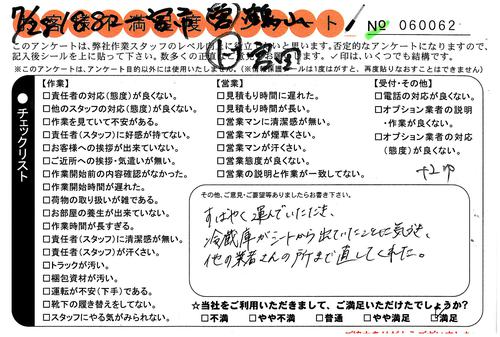 満 度 ート
№ 060062
このアンケートは、弊社作業スタッフのレベル向上に役立てたいと思います。否定的なアンケートになりますので、
記入後シールを上に貼って下さい。数多くの正直なご意見をお願いします。✓印は、いくつでも結構です。
※このアンケートは、アンケート目的以外には使用いたしません。(※情報保護シールは1度はがすと、再度貼りなおすことはできません)
●チェックリスト
【作業】
□責任者の対応(態度)が良くない。
□他のスタッフの対応(態度)が良くない。
□作業を見ていて不安がある。
□責任者(スタッフ)に好感が持てない。
□お客様への挨拶が出来ていない。
□ご近所への挨拶・気遣いが無い。
□作業開始前の内容確認がなかった。
□作業開始時間が遅れた。
□荷物の取り扱いが雑である。
□お部屋の養生が出来ていない。
□作業時間が長すぎる。
□責任者(スタッフ)に清潔感が無い。
□責任者(スタッフ)が汗くさい。
□トラックが汚い。
□梱包資材が汚い。
□運転が不安(下手)である。
□靴下の履き替えをしてない。
□スタッフにやる気がみられない。
【営業】
□見積もり時間に遅れた。
□見積もり時間が長い。
□営業マンに清潔感が無い。
□営業マンが煙草くさい。
□営業マンが汗くさい。
□営業態度が良くない。
□営業の説明と作業が一致してない。
【受付・その他】
□電話の対応が良くない。
□オプション業者の説明
・作業が良くない。
□オプション業者の対応
(態度)が良くない。
その他、ご意見・ご要望等ありましたらお書き下さい。
すばやく運んでいたにも、
冷蔵庫がシートから出ていたことに気づき、
他の業者さんの所まで直してくれた。
☆当社をご利用いただきまして、ご満足いただけたでしょうか?
□不満 □やや不満 □普通 □やや満足 □満足